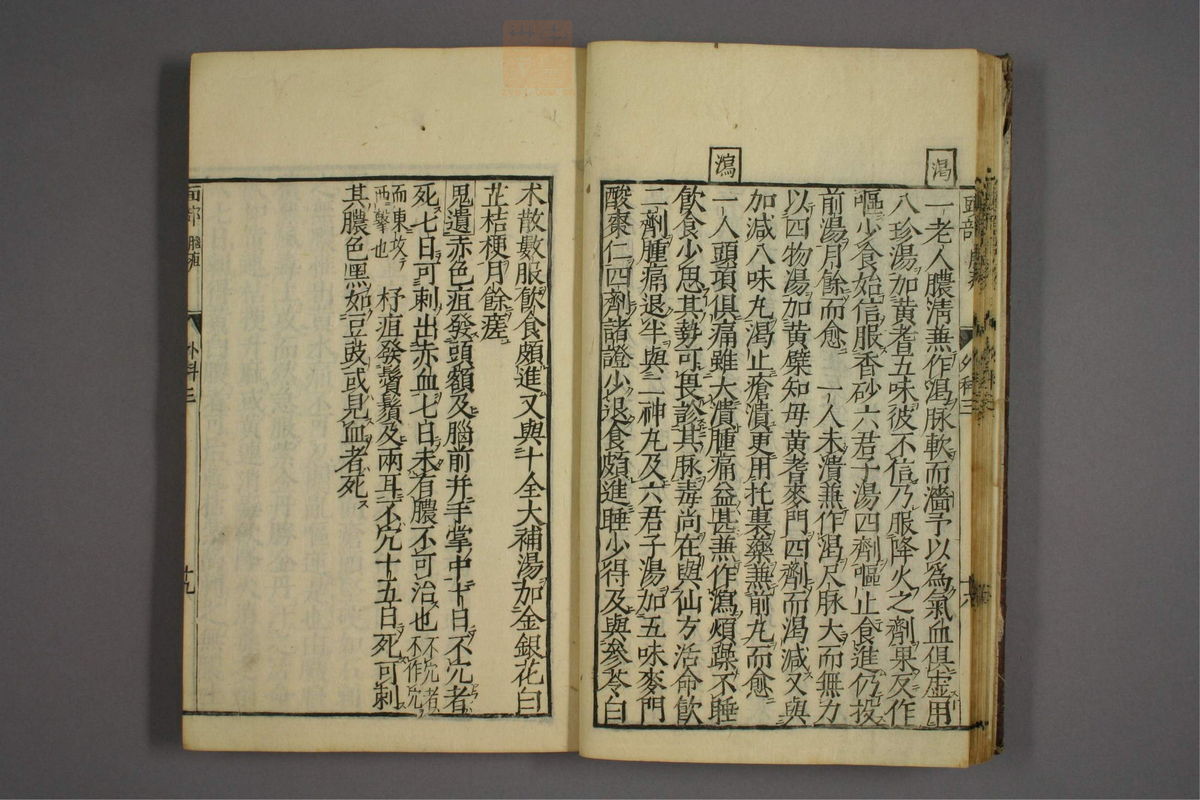 渇
瀉
一老人膿清兼作渇脉軟而濇予以爲氣血俱虚用
八珍湯加黄耆五味彼不信乃服降火之劑果反作
嘔少食始信服香砂六君子湯四劑嘔止食進仍投
前湯月餘而愈 一人未潰兼作渇尺脉大而無力
以四物湯加黄檗知母黄耆麥門四劑而渇減又與
加減八味丸渇止瘡潰更用托裏藥兼前丸而愈
一人頭項俱痛雖大潰腫痛益甚兼作瀉煩躁不睡
飲食少思其勢可畏診其脉毒尚在與仙方活命飲
二劑腫痛退半與二神丸及六君子湯加五味麥門
酸棗仁四劑諸證少退食頗進睡少得及與參苓白
术散數服飲食頗進又與十全大補湯加金銀花白
芷桔梗月餘瘥
鬼遺赤色疽發頭額及腦前并手掌中十日不穴者
死七日可刺出赤血七日未有膿不可治也不穴者不作穴
而東坟西擊也 杼疽發鬢鬚及兩耳不穴十五日死可刺
其膿色黑如豆豉或見血者死
面部
外科三
十九